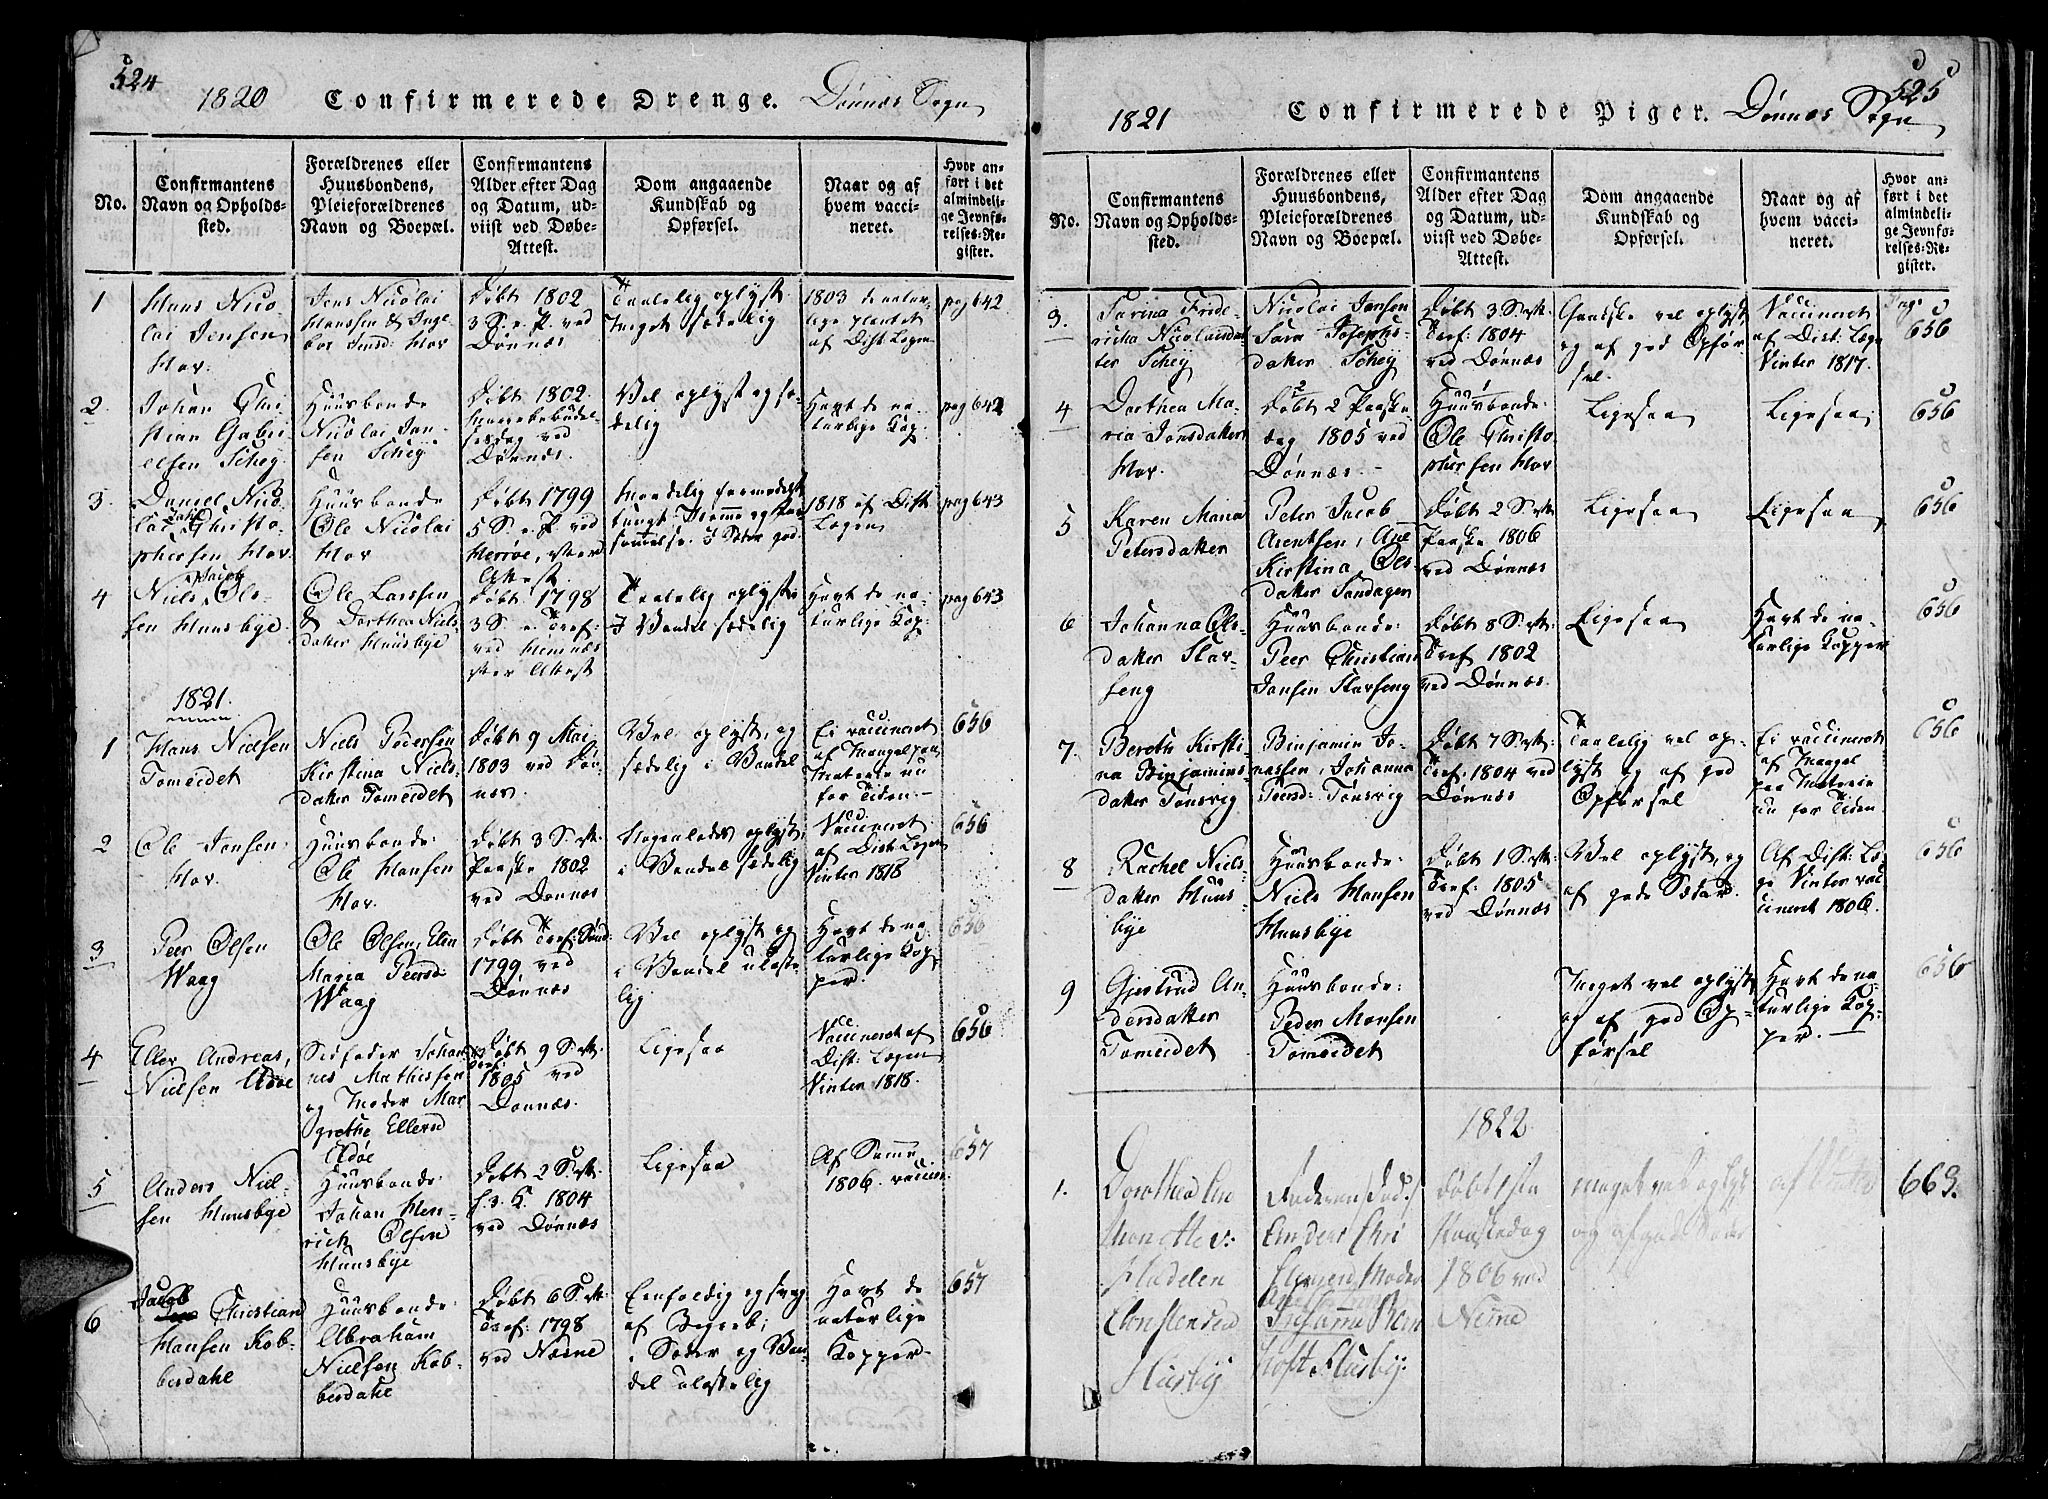 524
1820 Confirmerede Drenge. Dønnæs Sogn
No.
Confirmantens
Navn og Opholds-
sted.
Forældrenes eller
Huusbondens,
Pleieforældrenes
Navn og Boepæl.
Confirmantens
Alder efter Dag
og Datum, ud-
viist ved Døbe-
Attest.
Dom angaaende
Kundskab og
Opførsel.
Naar og af
hvem vacci-
neret.
Hvor an-
ført i det
almindeli-
ge Jevnfø-
relses-Re-
gister.
1
Hans Nico-
lai Jensen
Hov.
Jens Nicolai
Hanssen & Inge-
bor Hov
Døbt 1802
3 S. e. P. ved
Dønnæs
Taalelig oplyst
Meget sædelig
1803 de natur-
lige
af Dist: Lægen
pag 642
2.
Johan Chri-
stian Gabri-
elsen Schey
Huusbonde
Nicolai Jan-
sen Schey
Døbt 1802.
Mariæ bebudel-
sesdag ved
Dønnæs.
Vel oplyst og sæ-
delig
Havt de na-
turlige Kop:
pag 642
3.
Daniel Nico-
lai Christo-
phersen Hov.
Huusbonde
Ole Nicolai
Hov
Døbt 1799
5 S. e. P. ved
Herrøe,
Attest.
tungt Nemme og
sømmelse. I Sæder god.
1818 af Dist:
Lægen
pag 643
4
Niels Jacob Ols-
sen Huusbye.
Ole Larssen
& Dorthea Niels-
datter Huusbye
Døbt 1798
3 S. e. Tref:
ved Hemnæs
efter Attest
Taalelig oplyst
I Vandel sædelig
Havt de na-
turlige Kop:
pag 643
1821.
1
Hans Nielsen
Tomeidet
Niels Pedersen
Kirstina Niels-
datter Tomeidet
Døbt 9 Mai
1803 ved Døn-
næs.
Vel oplyst, og
sædelig i Vandel
Ei vaccineret
af Mangel paa
Materie nu
for Tiden.-
656
2
Ole Jensen
Hov.
Huusbonde:
Ole Hansen
Hov.
Døbt 3 S. eft:
Paaske 1802
ved Dønnæs
Nogenledes oplyst,
i Vandel sædelig
Vaccineret
af Dist: Lægen
Vinter 1818
656
3
Peer Olsen
Waag
Ole Olsen, Elen
Maria Peersd:
Waag
Døbt Tref: Sønd:
1799 ved
Dønnæs
Vel oplyst og
i Vandel ulaste-
lig
Havt de na-
turlige Kop-
per.
656
4
Eller Andreas
Nielsen
Stedfader Johan-
nes Mathissen
og Moder Mar-
grethe Ellersd
Døbt 9 S. eft:
Tref: 1805 ved
Dønnæs.
Ligesaa
Vaccineret af
Dist: Lægen
Vinter 1818.
656
5
Anders Niel-
sen Huusbye
Huusbonde:
Johan Hen-
rich Olsen
Huusbye
Døbt 2 S. eft:
H. 3. K. 1804
ved Dønnæs
Ligesaa
Af Samme
1806. vaccin:
657
6
Jacob Christian
Hansen Kob-
berdahl
Huusbonde:
Abraham
Nielsen Kob-
berdahl
Døbt 6 S. eft:
Tref: 1798
ved Næsne
Eenfoldig og svag
af Begreb;
i Sæder og Van-
del ulastelig
Havt de
naturlige
Kopper
657
525
1821 Confirmerede Piger. Dønnæs Sogn
No.
Confirmantens
Navn og Opholds-
sted.
Forældrenes eller
Huusbondens,
Pleieforældrenes
Navn og Boepæl.
Confirmantens
Alder efter Dag
og Datum, ud-
viist ved Døbe-
Attest.
Dom angaaende
Kundskab og
Opførsel.
Naar og af
hvem vacci-
neret.
Hvor an-
ført i det
almindeli-
ge Jevnfø-
relses-Re-
gister.
3.
Sarina Fride-
richa Nicolaidat-
ter Schey
Nicolai Jensen
Sara Josephs-
datter Schey
Døbt 3 S. eft:
Tref: 1804
ved Dønnæs
Gandske vel oplyst,
og af god Opfør-
sel.
Vaccineret
af Dist: Læge
Vinter 1817.
Pag:
656
4
Dorthea Ma-
ria Jonsdatter
Hov.
2
Døbt 2 Paaske
dag 1805 ved
Dønnæs. -
1
Huusbonde:
Ole Christo-
phersen Hov
Ligesaa
Ligesaa
656
5
Karen Maria
Petersdatter
Peter Jacob
Arentsen, Ane
Kirstina Ols-
datter Sandager
Døbt 2 S. eft:
Paaske 1806
ved Dønnæs
Ligesaa
Ligesaa
656
6
Johanna Ols-
datter Slaps-
eng
Huusbonde:
Peer Christian
Jansen Slapseng
Døbt 8 S. eft:
Tref 1802
ved Dønnæs.
Ligesaa
Havt de na-
turlige Kopper
656
7.
Bereth Kirsti-
na Binjamins-
datter Tønsvig
Binjamin Jo-
nassen, Johanna
Peersd: Tønsvig
Døbt 7 S. eft:
Tref: 1804 ved
Dønnæs
Taalelig vel op-
lyst og af god
Opførsel
Ei vaccineret
af Mangel
paa Materie
nu for Tiden
656
8
Rachel Niels-
datter Huus-
bye
Huusbonde:
Niels Hansen
Huusbye
Døbt 1 S. eft:
Tref: 1805
ved Dønnæs
Vel oplyst, og
af gode Sæder.
Af Dist: Læ-
ge Vinter vac-
cineret 1806.
656
9
Gjertrud An-
dersdatter
Tomeidet
Huusbonde:
Peder Monsen
Tomeidet
Meget vel oplyst,
og af god Op-
førsel
Havt de na-
turlige Kop-
per. -
656
1822
1.
Dorothea An-
Husby
Faderen
Anders Chri
Moder
Husby
Døbt 1ste
Paaskedag
1806 ved
Nesne
meget vel oplyst
og af gode Sæder
663.